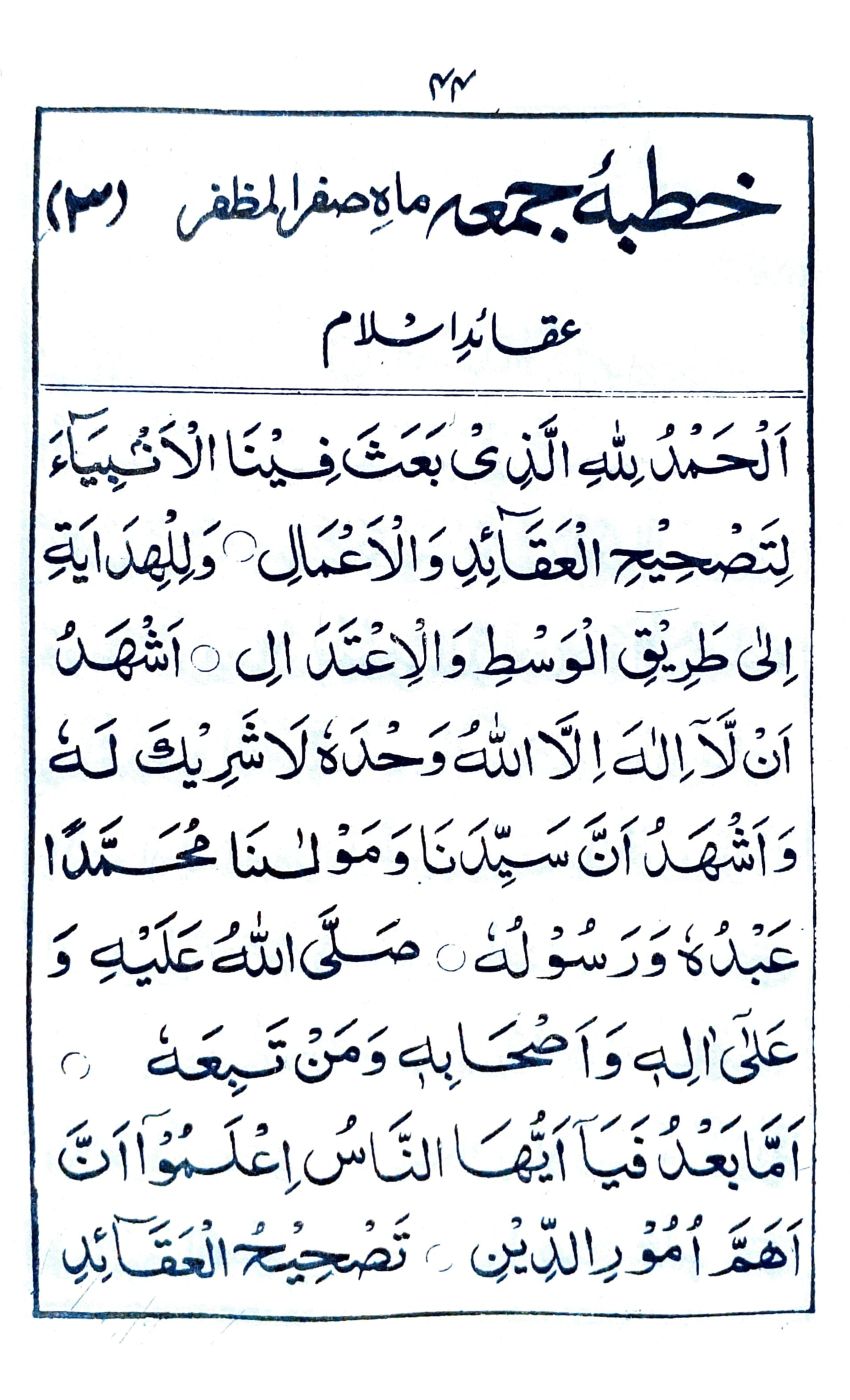 ۴۴
خطبۂ جمعہ ماہِ صفر المظفر (۳)
عقائدِ اسلام
اَلْحَمْدُ لِلّٰهِ الَّذِىْ بَعَثَ فِيْنَا الْاَنْۢبِيَآءَ
لِتَصْحِيْحِ الْعَقَآئِدِ وَالْاَعْمَالِ ○ وَلِلْهِدَايَةِ
اِلٰى طَرِيْقِ الْوَسْطِ وَالْاِعْتَدَالِ ○ اَشْهَدُ
اَنْ لَّآ اِلٰهَ اِلَّا اللّٰهُ وَحْدَهٗ لَا شَرِيْكَ لَهٗ
وَاَشْهَدُ اَنَّ سَيِّدَنَا وَمَوْلٰىنَا مُحَمَّدًا
عَبْدُهٗ وَرَسُوْلُهٗ ○ صَلَّى اللّٰهُ عَلَيْهِ وَ
عَلٰٓى اٰلِهٖ وَاَصْحَابِهٖ وَمَنْ تَبِعَهٗ ○
اَمَّا بَعْدُ فَيَآ اَيُّهَا النَّاسُ اِعْلَمُوْٓا اَنَّ
اَهَمَّ اُمُوْرِ الدِّيْنِ ○ تَصْحِيْحُ الْعَقَآئِدِ